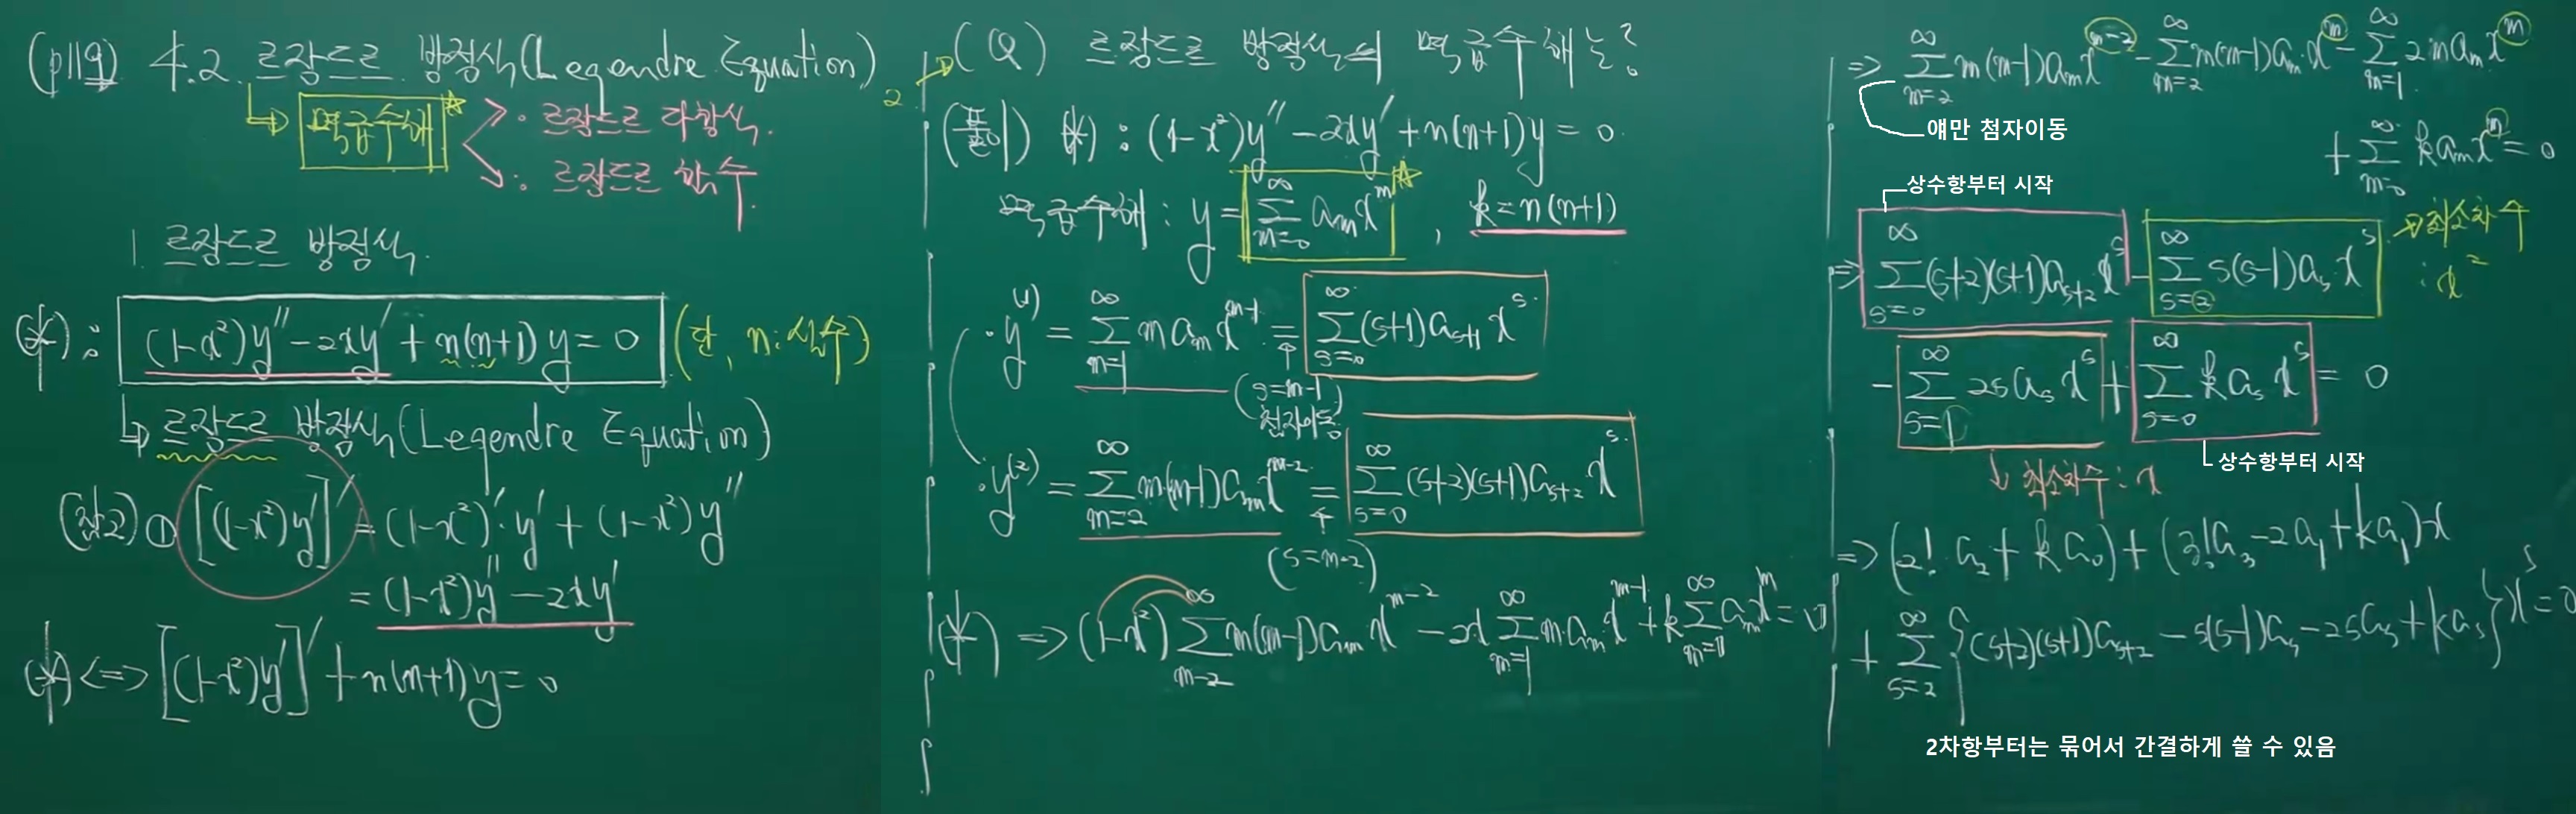 (p119) 4.2 르장드르 방정식(Legendre Equation)
↳ 멱급수해 ☆ · 르장드르 다항식.
· 르장드르 함수.
1. 르장드르 방정식.
(*) : (1-x²)y'' - 2xy' + n(n+1)y = 0 (단, n:실수)
↳ 르장드르 방정식(Legendre Equation)
(참고) ① [(1-x²)y']' = (1-x²)'·y' + (1-x²)y''
= (1-x²)y'' - 2xy'
(*) <=> [(1-x²)y']' + n(n+1)y = 0
2. (Q) 르장드르 방정식의 멱급수해는?
(풀이) (*) : (1-x²)y'' - 2xy' + n(n+1)y = 0
멱급수해 : y = ∑_{m=0}^{∞} a_m x^m ☆ , k = n(n+1)
· y^{(1)} = ∑_{m=1}^{∞} m a_m x^{m-1} = ∑_{s=0}^{∞} (s+1)a_{s+1} x^s
(s=m-1)
첨자이동
· y^{(2)} = ∑_{m=2}^{∞} m(m-1)a_m x^{m-2} = ∑_{s=0}^{∞} (s+2)(s+1)a_{s+2} x^s
(s=m-2)
(*) => (1-x²) ∑_{m=2}^{∞} m(m-1)a_m x^{m-2} - 2x ∑_{m=1}^{∞} m·a_m x^{m-1} + k ∑_{m=0}^{∞} a_m x^m = 0
=> ∑_{m=2}^{∞} m(m-1)a_m x^{m-2} - ∑_{m=2}^{∞} m(m-1)a_m x^m - ∑_{m=1}^{∞} 2m a_m x^m
얘만 첨자이동
+ ∑_{m=0}^{∞} k a_m x^m = 0
상수항부터 시작
=> ∑_{s=0}^{∞} (s+2)(s+1)a_{s+2} x^s - ∑_{s=2}^{∞} s(s-1)a_s x^s → 최소차수 : x²
- ∑_{s=1}^{∞} 2s a_s x^s + ∑_{s=0}^{∞} k a_s x^s = 0
↓ 최소차수 : x
상수항부터 시작
=> (2!·a_2 + k a_0) + (3!a_3 - 2a_1 + k a_1)x
+ ∑_{s=2}^{∞} {(s+2)(s+1)a_{s+2} - s(s-1)a_s - 2s a_s + k a_s} x^s = 0
2차항부터는 묶어서 간결하게 쓸 수 있음